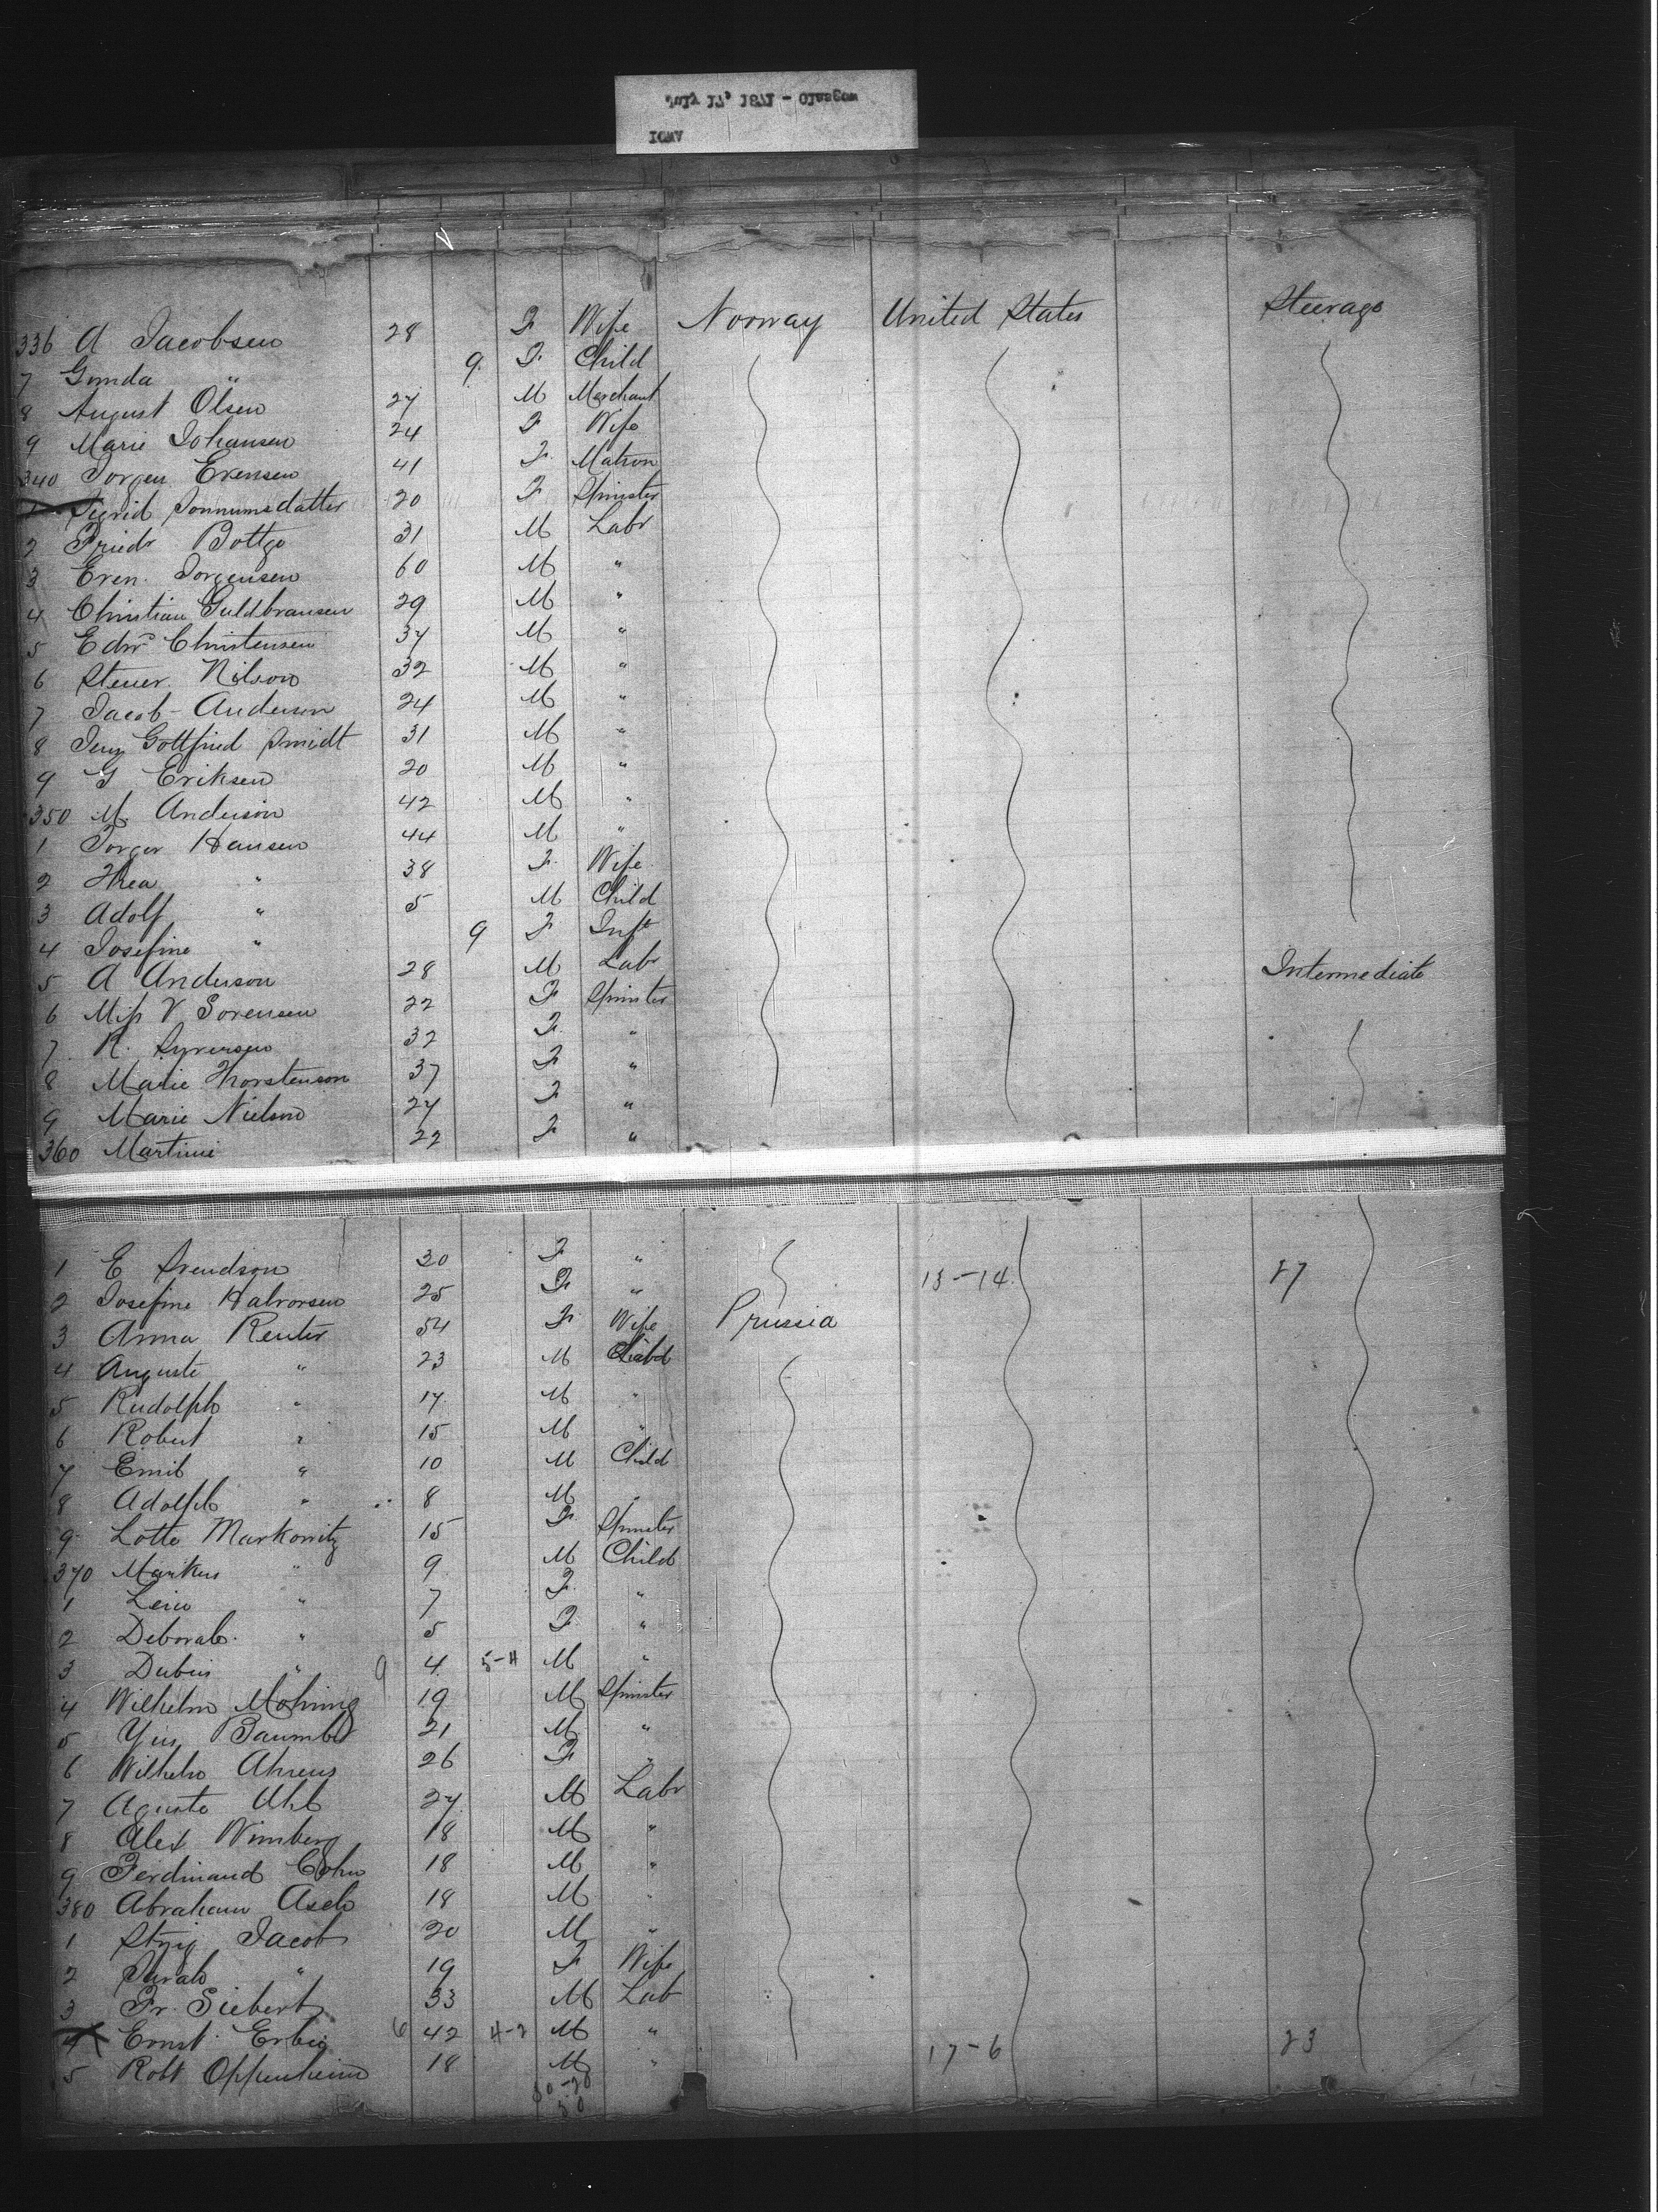 IOWA
336 A Jacobsen 28 F Wife Norway United States Steerage
7 Gunda " 9 F Child
8 August Olsen 27 M Merchant
9 Marie Johansen 24 F Wife
340 Jorgen Evensen 41 F Matron
1 Sigrid 20 F Spinster
2 Friedr Bottge 31 M Labr
3 Even Jorgensen 60 M "
4 Christian Guldbransen 29 M "
5 Edwr Christensen 37 M "
6 Stener Nilson 32 M "
7 Jacob Anderson 24 M "
8 Jens Gottfried Smidt 31 M "
9 G Eriksen 20 M "
350 M Anderson 42 M "
1 Torger Hansen 44 M "
2 Thea " 38 F Wife
3 Adolf " 5 M Child
4 Josefine " 9 F Inft
5 A Anderson 28 M Labr Intermediate
6 Miss V Sorensen 22 F Spinster
7 R. Syversen 32 F "
8 Marie Thorstenson 37 F "
9 Marie Nielsen 27 F "
360 Martini 22 F "
1 E Svendson 30 F "
13-14 27
2 Josefine Halvorsen 25 F "
3 Anna Reuter 54 F Wife Prussia
4 Auguste " 23 M
5 Rudolph " 17 M "
6 Robert " 15 M "
7 Emil " 10 M Child
8 Adolph " 8 M "
9 Lotte Markowitz 15 F Spinster
370 Markus " 9 M Child
1 " 7 F "
2 Deborah " 5 F "
3 " 9 4 5-11 M "
4 Wilhelm Mohring 19 M Spinster
5 21 M "
6 Wilhelm Ahrens 26 F "
7 Aguste Uhl 27 M Labr
8 Alex 18 M "
9 Ferdinand Cohn 18 M "
380 Abraham Asch 18 M "
1 Jacob 20 M "
2 Sarah " 19 F Wife
3 Fr. Siebert 33 M Lab
4 Ernst 6 42 4-2 M "
17-6 23
5 Robt Oppenheim 18 M "
30-20
30